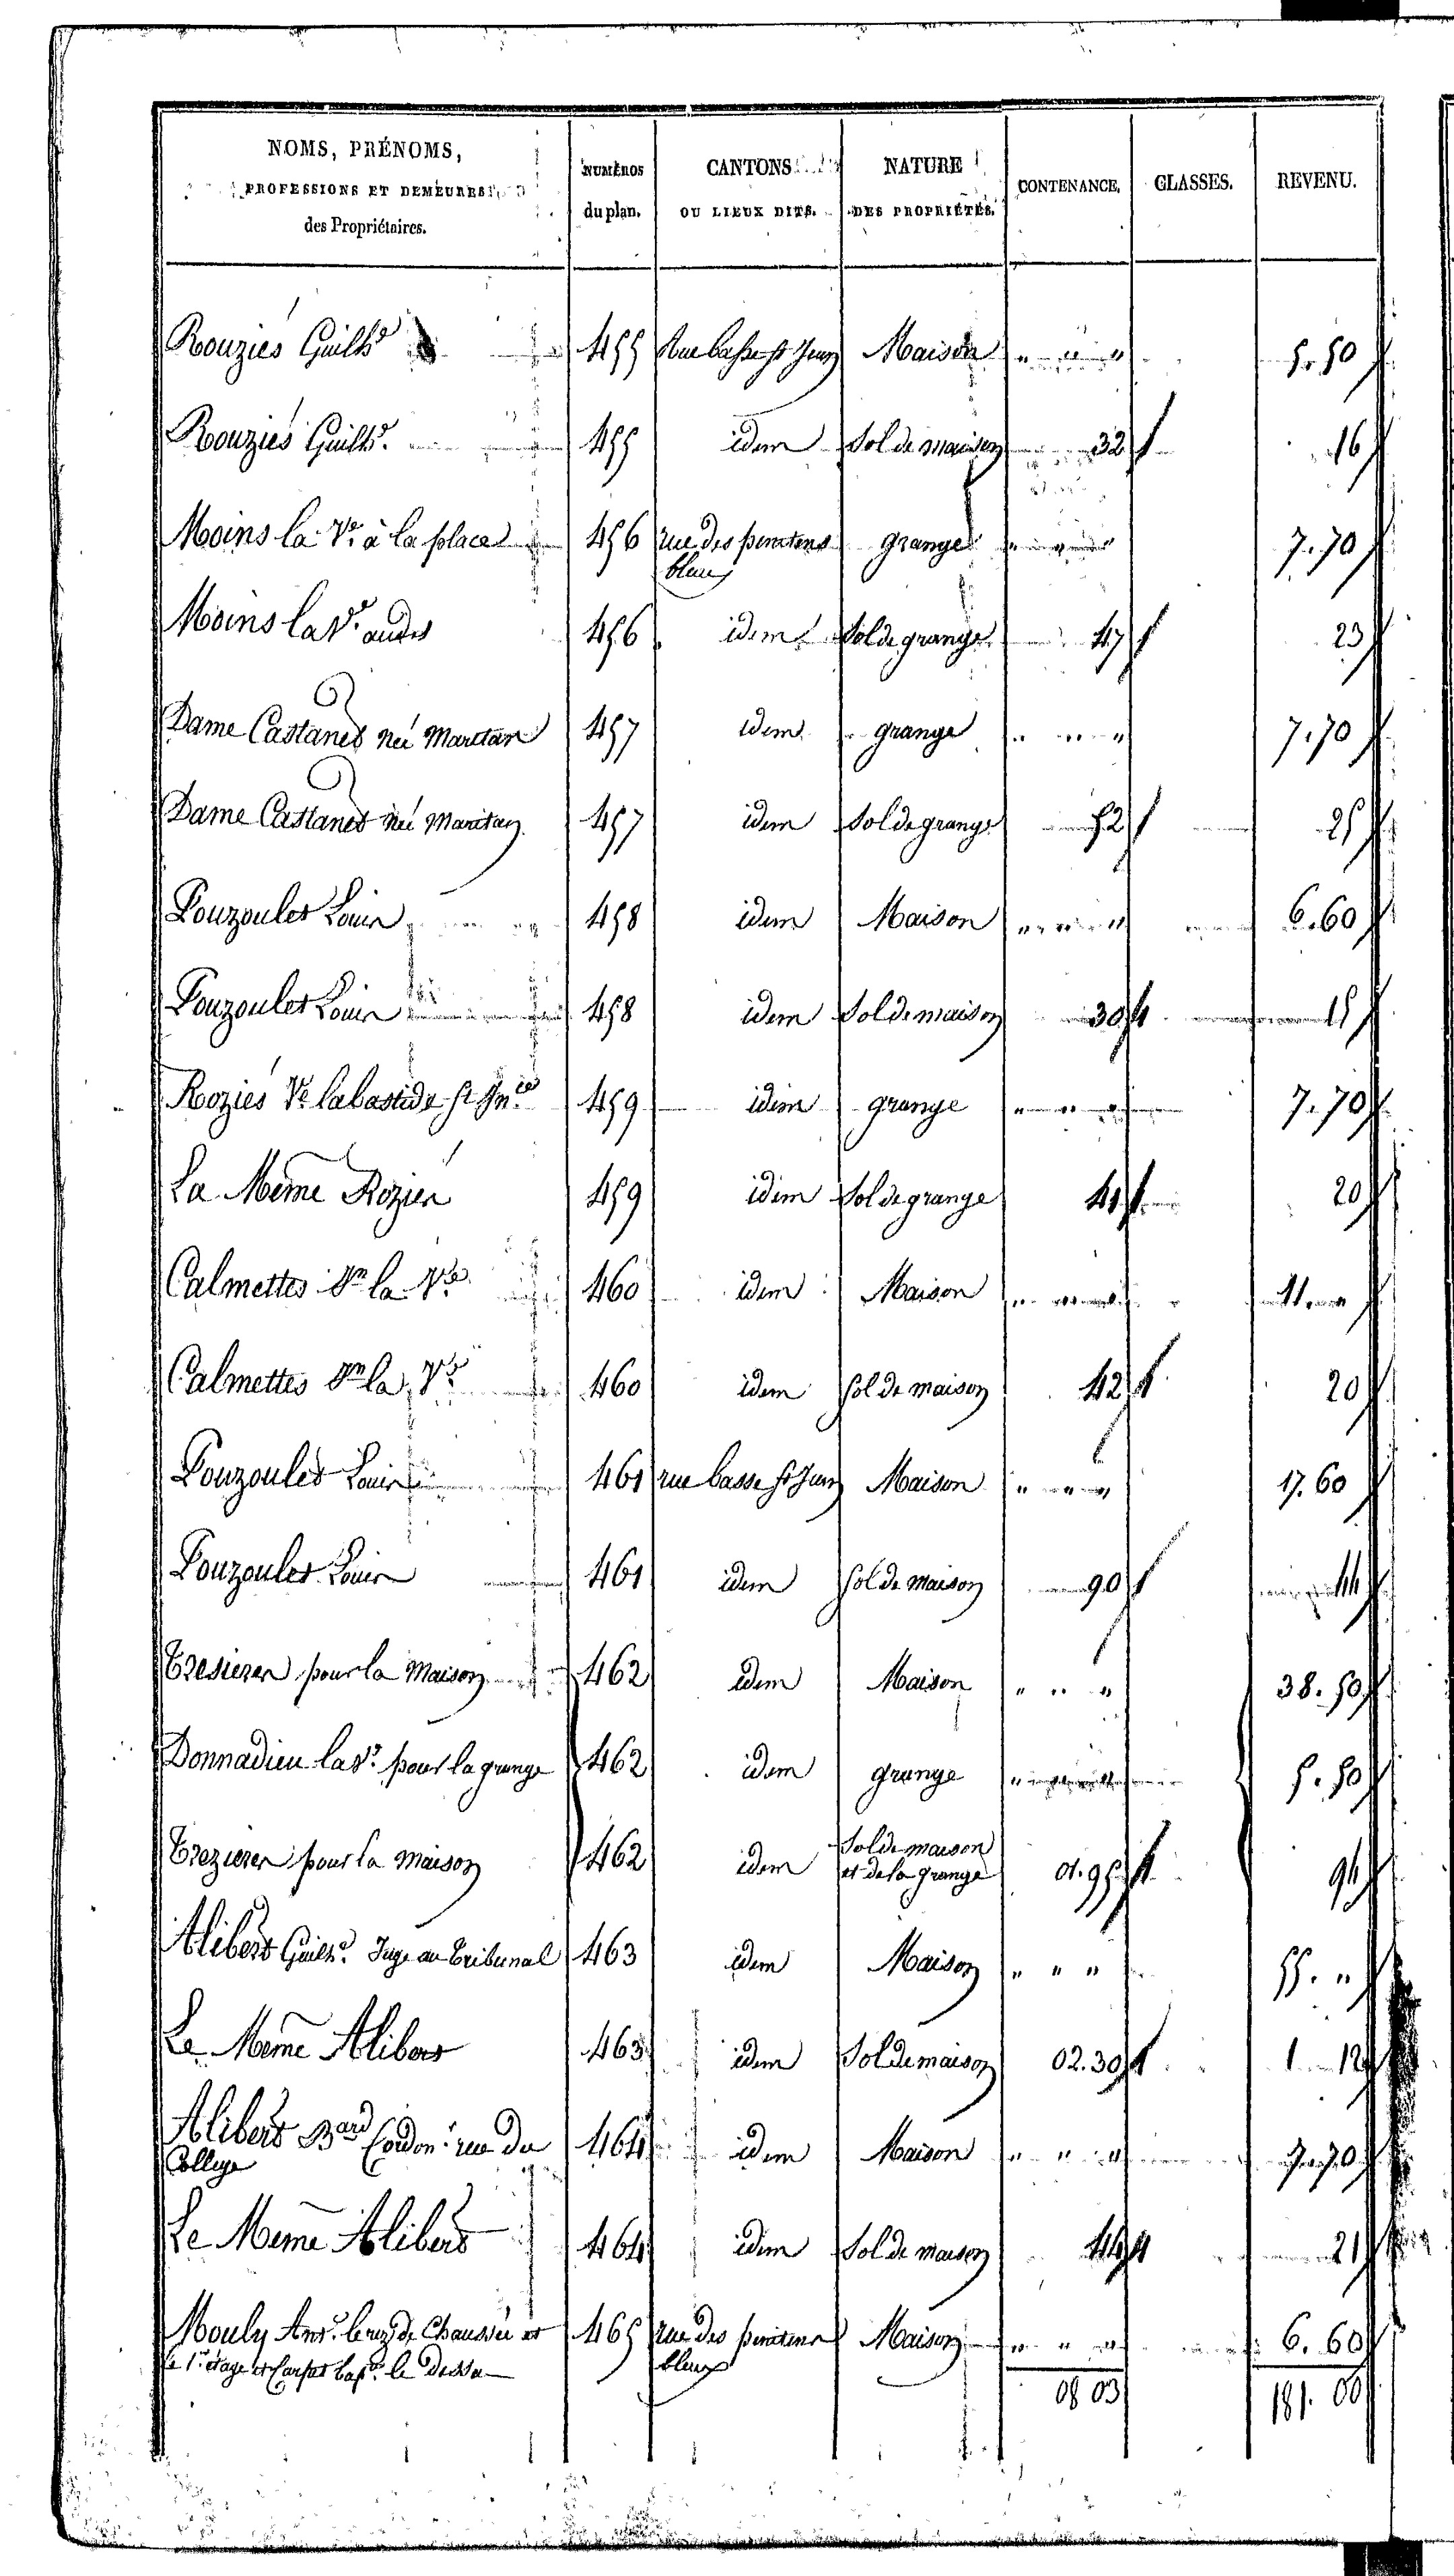 NOMS, PRÉNOMS, PROFESSIONS ET DEMEURES des Propriétaires. NUMÉROS du plan. CANTONS OU LIEUX DITS. NATURE DES PROPRIÉTÉS. CONTENANCE. CLASSES. REVENU.
Rouziés Guilhe 455 Rue basse st Jean Maison " " " 5. 50
Rouziés Guilhe. 455 idem Sol de maison 32 1 16
Moins la Ve. à la place 456 rue des penitens bleus grange " " " 7. 70
Moins la Ve. 456 idem Sol de grange 47 1 23
Dame Castanet née Maritan 457 idem grange " " " 7. 70
Dame Castanet née Maritan 457 idem Sol de grange 52 1 25
Pouzoulet Louis 458 idem Maison " " " 6. 60
Pouzoulet Louis 458 idem Sol de maison 30 1 15
Roziés Ve labastide st 459 idem grange " " " 7. 70
La Meme Roziés 459 idem Sol de grange 41 1 20
Calmettes la Ve 460 idem Maison " " " 11 "
Calmettes la Ve 460 idem Sol de maison 42 1 20
Pouzoulet Louis 461 rue basse st Jean Maison " " " 17. 60
Pouzoulet Louis 461 idem Sol de maison 90 1 44
Tresieres pour la Maison 462 idem Maison " " " 38. 50
Donnadieu la Ve. pour la grange 462 idem grange " " " 5. 50
Trezieres pour la Maison 462 idem Sol de maison et de la grange 01. 95 1 94
Alibert Guilhe. Juge au Tribunal 463 idem Maison " " " 55. "
Le Meme Alibert 463 idem Sol de maison 02. 30 1 1 12
Alibert Bard Cordon. rue du College 464 idem Maison " " " 7. 70
Le Meme Alibert 464 idem Sol de maison 44 1 21
Mouly Ant. le rez de Chaussée et le 1er étage et le Dessus 465 rue des penitens bleus Maison " " " 6. 60
08 03 181. 00